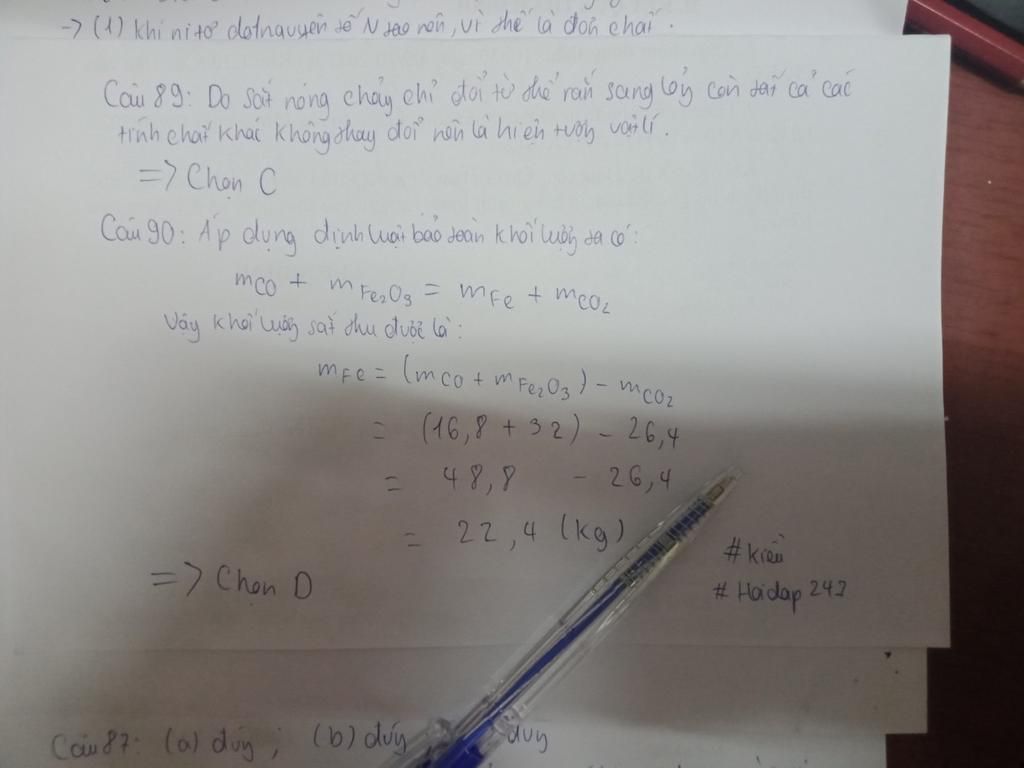 -> (1) khí nitơ do nguyên tố N tạo nên, vì thế là đơn chất.
Câu 89: Do sắt nóng chảy chỉ đổi từ thể rắn sang lỏng còn tất cả các
tính chất khác không thay đổi nên là hiện tượng vật lí.
=> Chọn C
Câu 90: Áp dụng định luật bảo toàn khối lượng ta có:
mCO + mFe₂O₃ = mFe + mCO₂
Vậy khối lượng sắt thu được là:
mFe = (mCO + mFe₂O₃) - mCO₂
= (16,8 + 32) - 26,4
= 48,8 - 26,4
= 22,4 (kg)
=> Chọn D
#kiều
# Hoidap 247
Câu 87: (a) đúng ; (b) đúng đúng